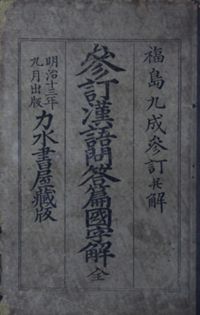 福島九成參訂并解
參訂漢語問答篇國字解 全
明治十三年
九月出版
力水書屋藏版